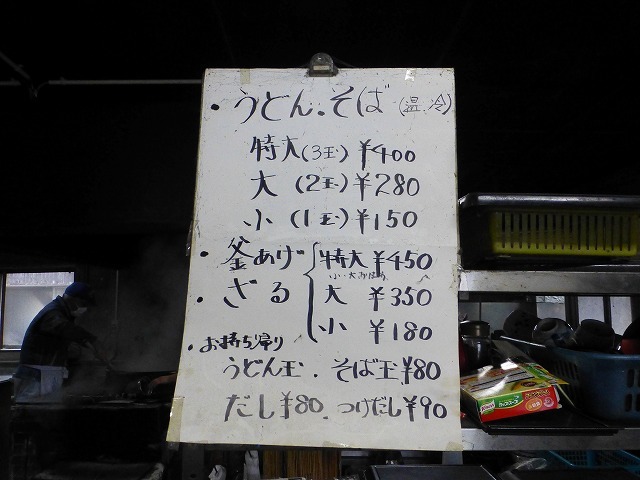 ・うどん.そば(温.冷)
特大(3玉)¥400
大(2玉)¥280
小(1玉)¥150
・釜あげ
・ざる
特大¥450
大¥350
小¥180
・お持ち帰り
うどん玉.そば玉¥80
だし¥80.つけだし¥90